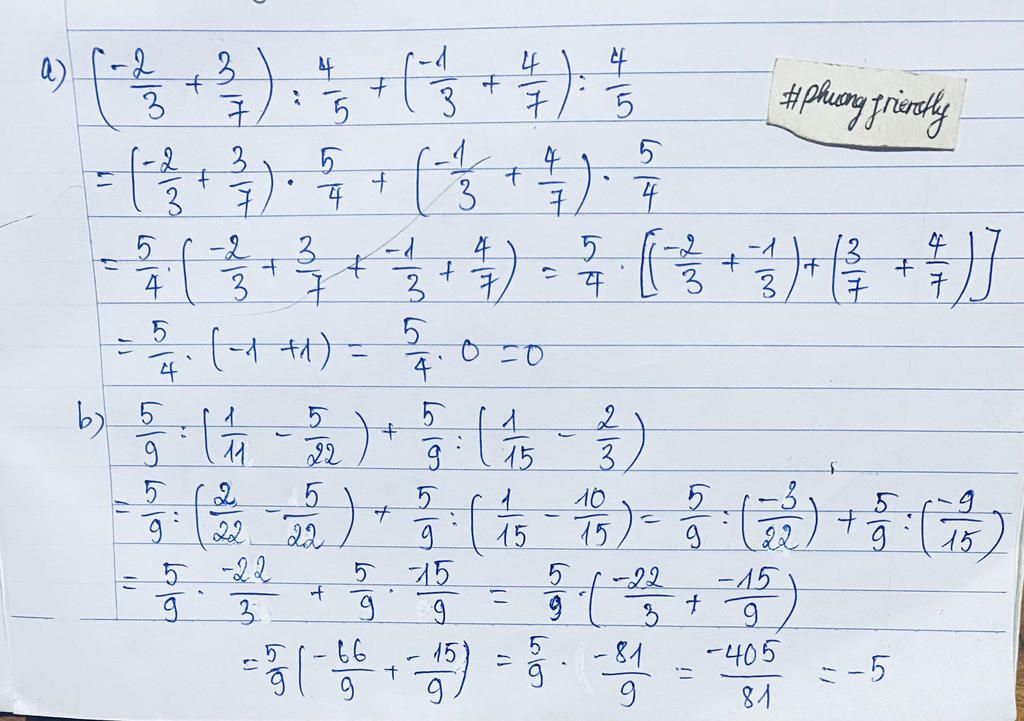 a) (-2/3 + 3/7) : 4/5 + (-1/3 + 4/7) : 4/5
#phuong friendly
= (-2/3 + 3/7) . 5/4 + (-1/3 + 4/7) . 5/4
= 5/4 . (-2/3 + 3/7 + -1/3 + 4/7) = 5/4 . [(-2/3 + -1/3) + (3/7 + 4/7)]
= 5/4 . (-1 + 1) = 5/4 . 0 = 0
b) 5/9 : (1/11 - 5/22) + 5/9 : (1/15 - 2/3)
= 5/9 : (2/22 - 5/22) + 5/9 : (1/15 - 10/15) = 5/9 : (-3/22) + 5/9 : (-9/15)
= 5/9 . -22/3 + 5/9 . -15/9 = 5/9 . (-22/3 + -15/9)
= 5/9 (-66/9 + -15/9) = 5/9 . -81/9 = -405/81 = -5